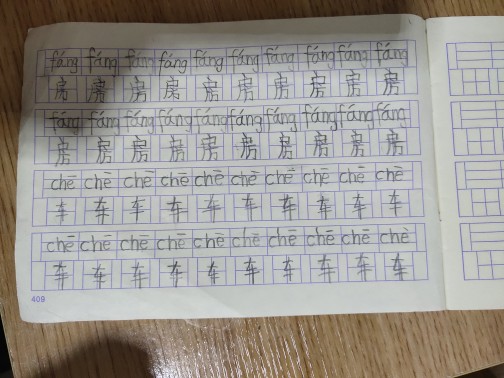 fáng fáng fáng fáng fáng fáng fáng fáng fáng fáng
房 房 房 房 房 房 房 房 房 房
fáng fáng fáng fáng fáng fáng fáng fáng fáng fáng
房 房 房 房 房 房 房 房 房 房
chē chē chē chē chē chē chē chē chē chē
车 车 车 车 车 车 车 车 车 车
chē chē chē chē chē chē chē chē chē chē
车 车 车 车 车 车 车 车 车 车
409